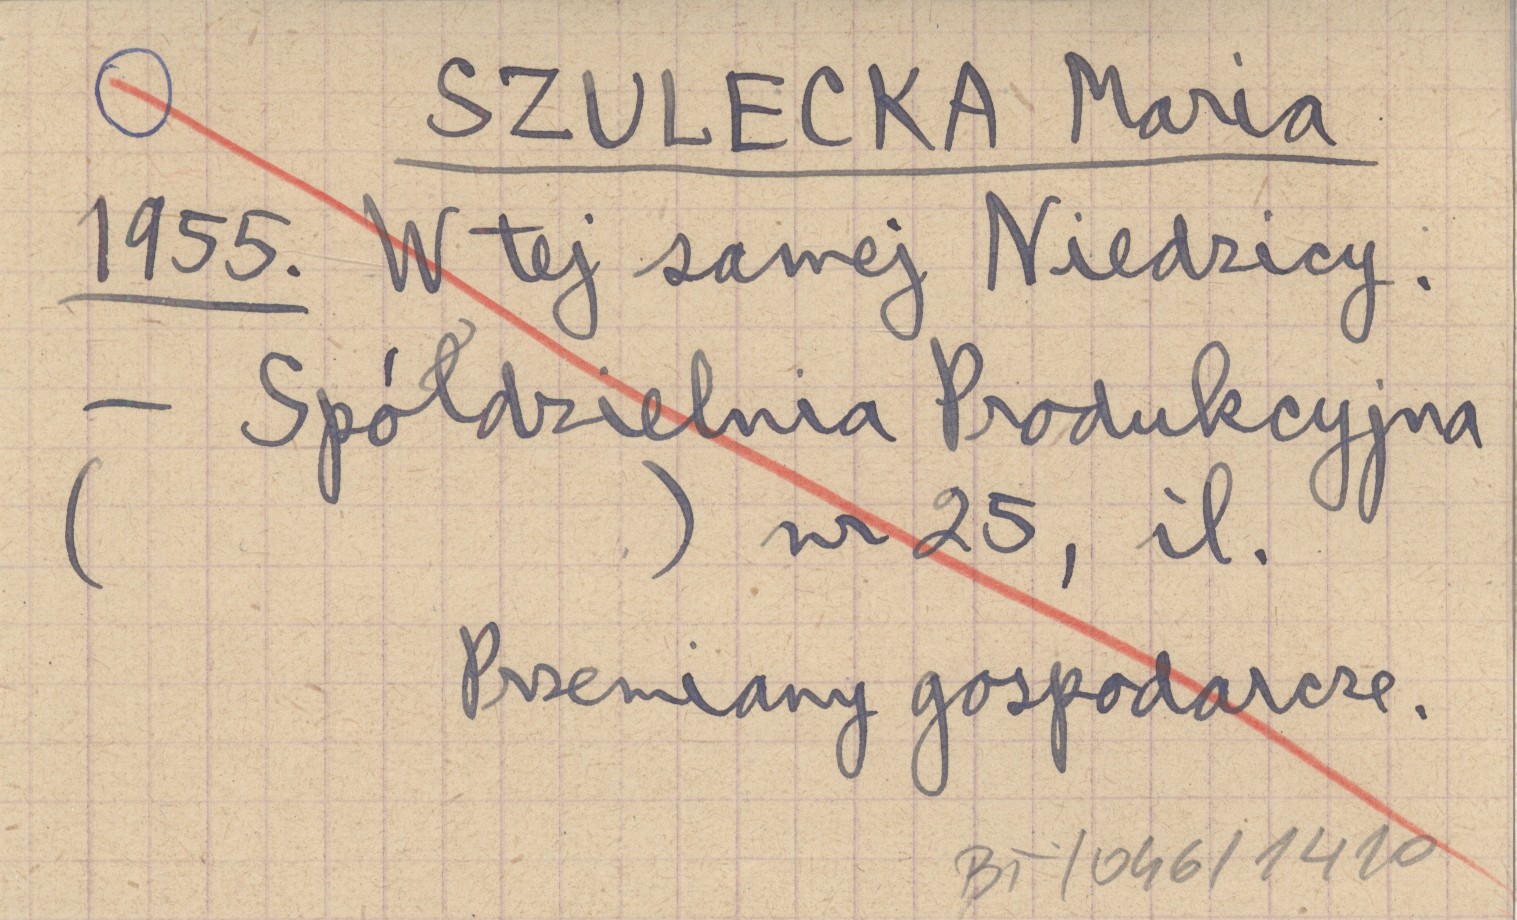 SZULECKA Maria
1955. W tej samej Niedzicy.
— Spółdzielnia Produkcyjna
( ) nr 25, il.
Przemiany gospodarcze.
BT/046/1410